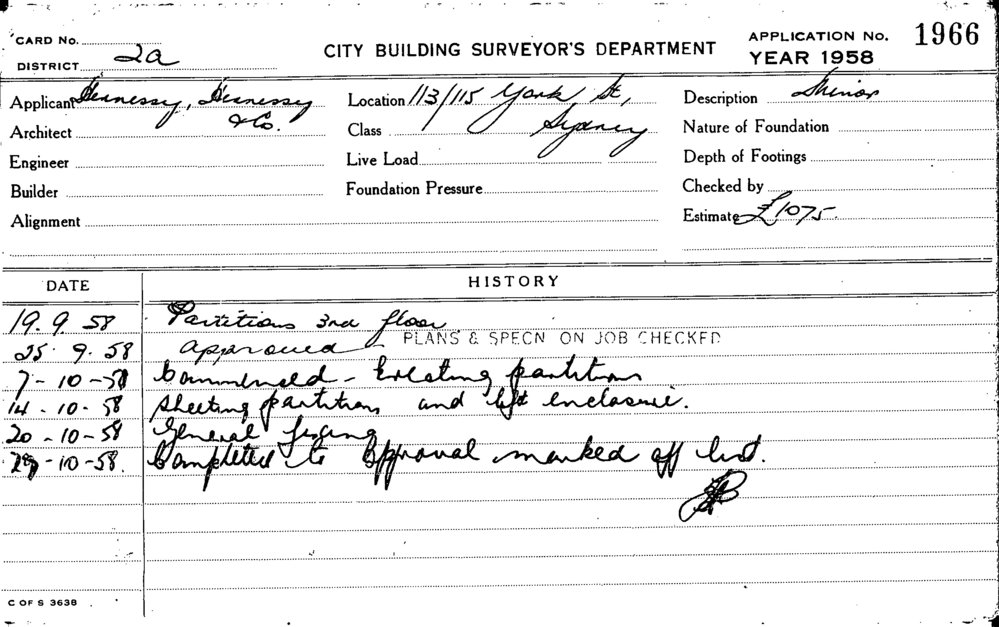 CARD No.
DISTRICT 2a
CITY BUILDING SURVEYOR'S DEPARTMENT
APPLICATION No. 1966
YEAR 1958
Applicant Hennessy, Hennessy & Co.
Architect
Engineer
Builder
Alignment
Location 113/115 York St, Sydney
Class
Live Load
Foundation Pressure
Description Minor
Nature of Foundation
Depth of Footings
Checked by
Estimate £1075.
DATE HISTORY
19. 9. 58 Partitions 3rd floor
25. 9. 58 approved PLANS & SPECN ON JOB CHECKED
7-10-58 Commenced - Erecting partitions
14-10-58 Sheeting partitions and lift enclosure.
20-10-58 General fixing
29-10-58. Completed to approval marked off list.
C OF S 3638